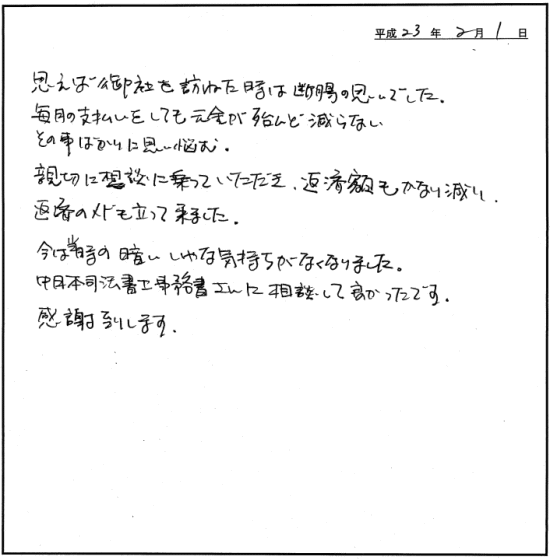 平成23年2月1日
思えば御社を訪ねた時は断腸の思いでした。
毎月の支払いをしても元金が殆んど減らない
その事ばかりに思い悩む。
親切に想談に乗っていただき、返済額もかなり減り、
返済のメドも立って来ました。
今は当時の暗いいやな気持ちがなくなりました。
中日本司法書士事務書さんに相談して良かったです。
感謝致します。